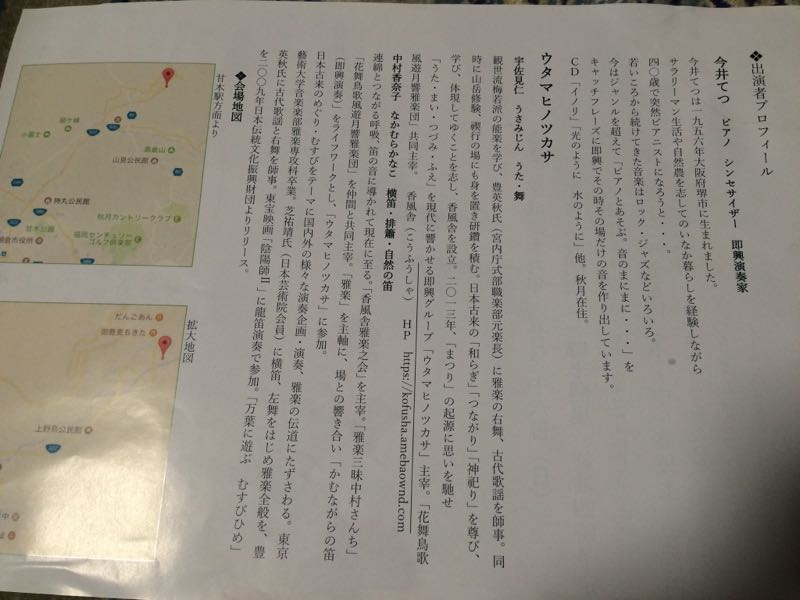 ❖出演者プロフィール
今井てつ ピアノ シンセサイザー 即興演奏家
今井てつは一九五六年大阪府堺市に生まれました。
サラリーマン生活や自然農を志してのいなか暮らしを経験しながら
四〇歳で突然ピアニストになろうと・・・。
若いころから続けてきた音楽はロック・ジャズなどいろいろ。
今はジャンルを超えて「ピアノとあそぶ。音のまにまに・・・」を
キャッチフレーズに即興でその時その場だけの音を作り出しています。
CD「イノリ」「光のように 水のように」他。秋月在住。
ウタマヒノツカサ
宇佐見仁 うさみじん うた・舞
観世流梅若派の能楽を学び、豊英秋氏(宮内庁式部職楽部元楽長)に雅楽の右舞、古代歌謡を師事。同
時に山岳修験、禊行の場にも身を置き研鑽を積む。日本古来の「和らぎ」「つながり」「神祀り」を尊び、
学び、体現してゆくことを志し、香風舎を設立。二〇一三年、「まつり」の起源に思いを馳せ
「うた・まい・つづみ・ふえ」を現代に響かせる即興グループ「ウタマヒノツカサ」主宰。「花舞鳥歌
風遊月響雅楽団」共同主宰。 香風舎(こうふうしゃ) HP https://kofusha.amebaownd.com
中村香奈子 なかむらかなこ 横笛・排簫・自然の笛
連綿とつながる呼吸、笛の音に導かれて現在に至る。「香風舎雅楽之会」を主宰。「雅楽三昧中村さんち」
「花舞鳥歌風遊月響雅楽団」を仲間と共同主宰。「雅楽」を主軸に、場との響き合い「かむながらの笛
(即興演奏)」をライフワークとし、「ウタマヒノツカサ」に参加。
日本古来のめぐり・むすびをテーマに国内外の様々な演奏企画・演奏、雅楽の伝道にたずさわる。東京
藝術大学音楽楽部雅楽専攻科卒業。芝祐靖氏(日本芸術院会員)に横笛、左舞をはじめ雅楽全般を、豊
英秋氏に古代歌謡と右舞を師事。東宝映画「陰陽師Ⅱ」に龍笛演奏で参加。「万葉に遊ぶ むすびひめ」
を二〇〇九年日本伝統文化振興財団よりリリース。
❖会場地図
甘木駅方面より
高倉山
山見公館
持丸公民館
秋月カントリークラブ
甘木公園
福岡センチュリー
ゴルフ倶楽部
朝倉市役所
拡大地図
だんごあん
上野鳥公民館